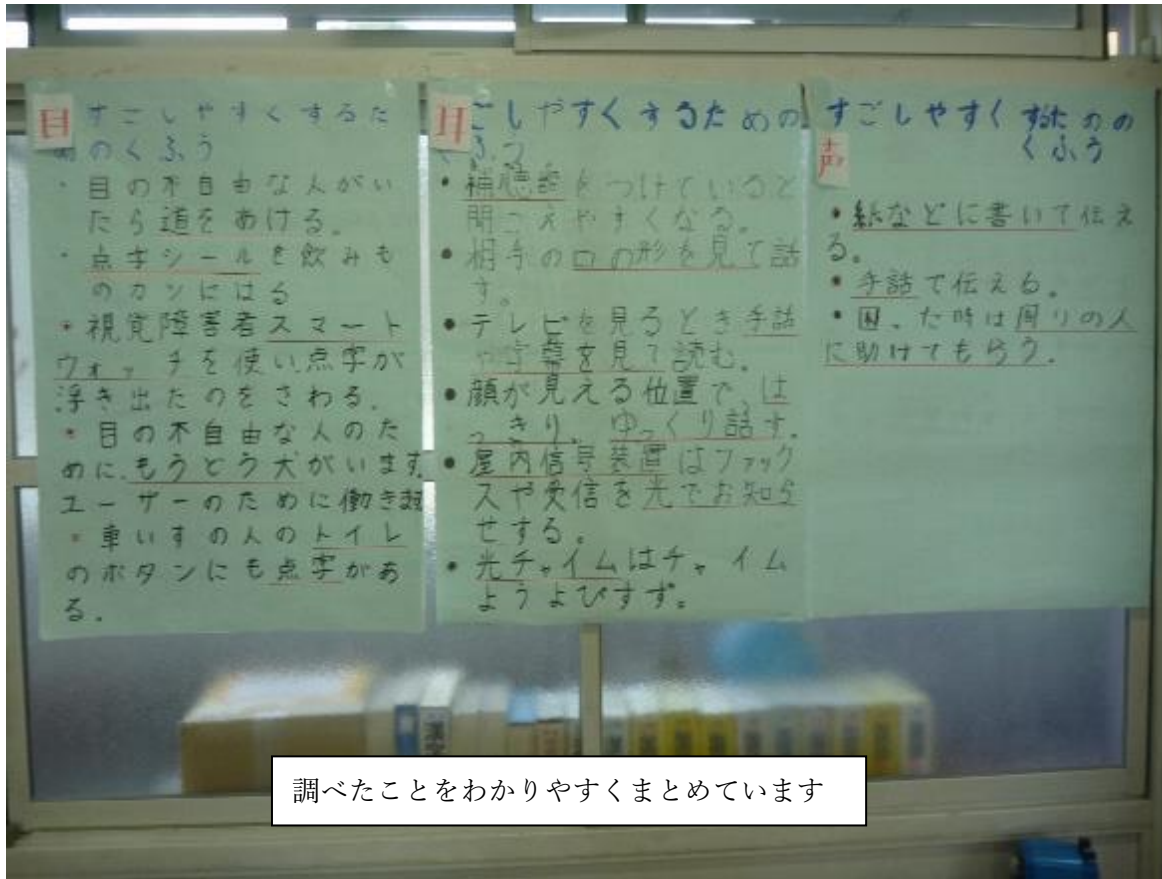 目
すごしやすくするた
めのくふう
・目の不自由な人がい
たら道をあける。
・点字シールを飲みも
のカンにはる
・視覚障害者スマート
ウォッチを使い点字が
浮き出たのをさわる。
・目の不自由な人のた
めに、もうどう犬がいます
ユーザーのために働きます
・車いすの人のトイレ
のボタンにも点字があ
る。
耳
ごしやすくするための
くふう
・補聴器をつけていると
聞こえやすくなる。
・相手の口の形を見て話
す。
・テレビを見るとき手話
や字幕を見て読む。
・顔が見える位置で、は
っきり、ゆっくり話す。
・屋内信号装置はファック
スや受信を光でお知ら
せする。
・光チャイムはチャイム
ようよびすず。
声
すごしやすくするための
くふう
・紙などに書いて伝え
る。
・手話で伝える。
・困った時は周りの人
に助けてもらう。
漢字
調べたことをわかりやすくまとめています